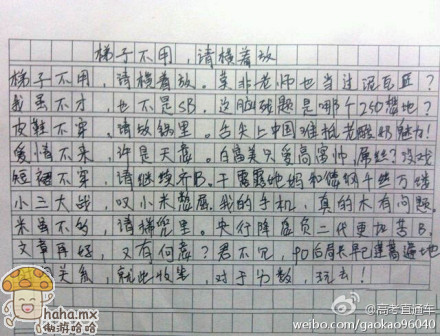 梯子不用,请横着放
梯子不用,请横着放。莫非老师也当过泥瓦匠?
我虽不才,也不是SB。这脑残题是哪个250想地?
皮鞋不穿,请放锅里。舌尖上中国谁抵老酸奶魅力!
爱情不来,许是天意。白富美只爱高富帅,屌丝?
短裙不穿,请继续齐B。干露露她妈和
小三大战,叹小米憋屈。我的手机,真的木有问题。
米虽不多,请揣兜里。央行降息负二代更加苦B。
文章再好,又有何意?君不见,90后局长早已遍地
关系,就此收笔,对于分数,玩去!
haha.mx
傲游哈哈
@高考直通车
weibo.com/gaokao96040